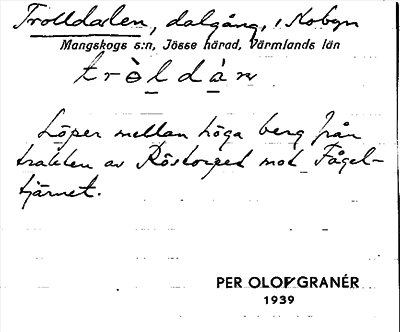 Trolldalen, dalgång, i Kobyn
Mangskogs s:n, Jösse härad, Värmlands län
tròldàn
Löper mellan höga berg från
trakten av Röstorpet mot Fågel-
tjärnet.
PER OLOF GRANÉR
1939